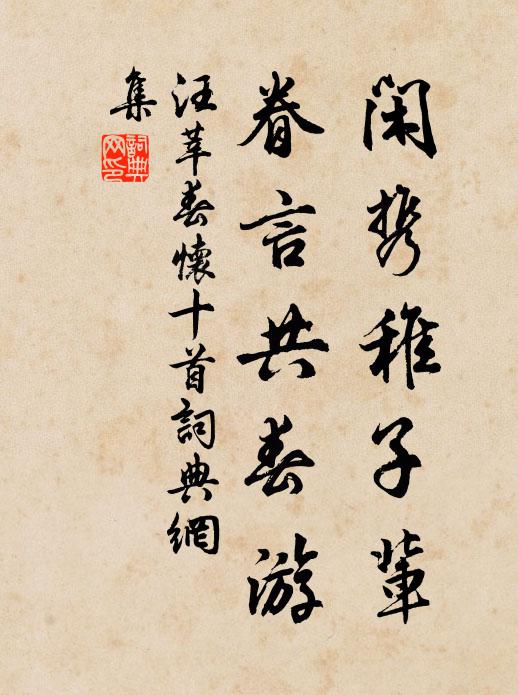 闲携稚子辈
眷言共春游
汪莘春怀十首詞典網
集
詞典
网印